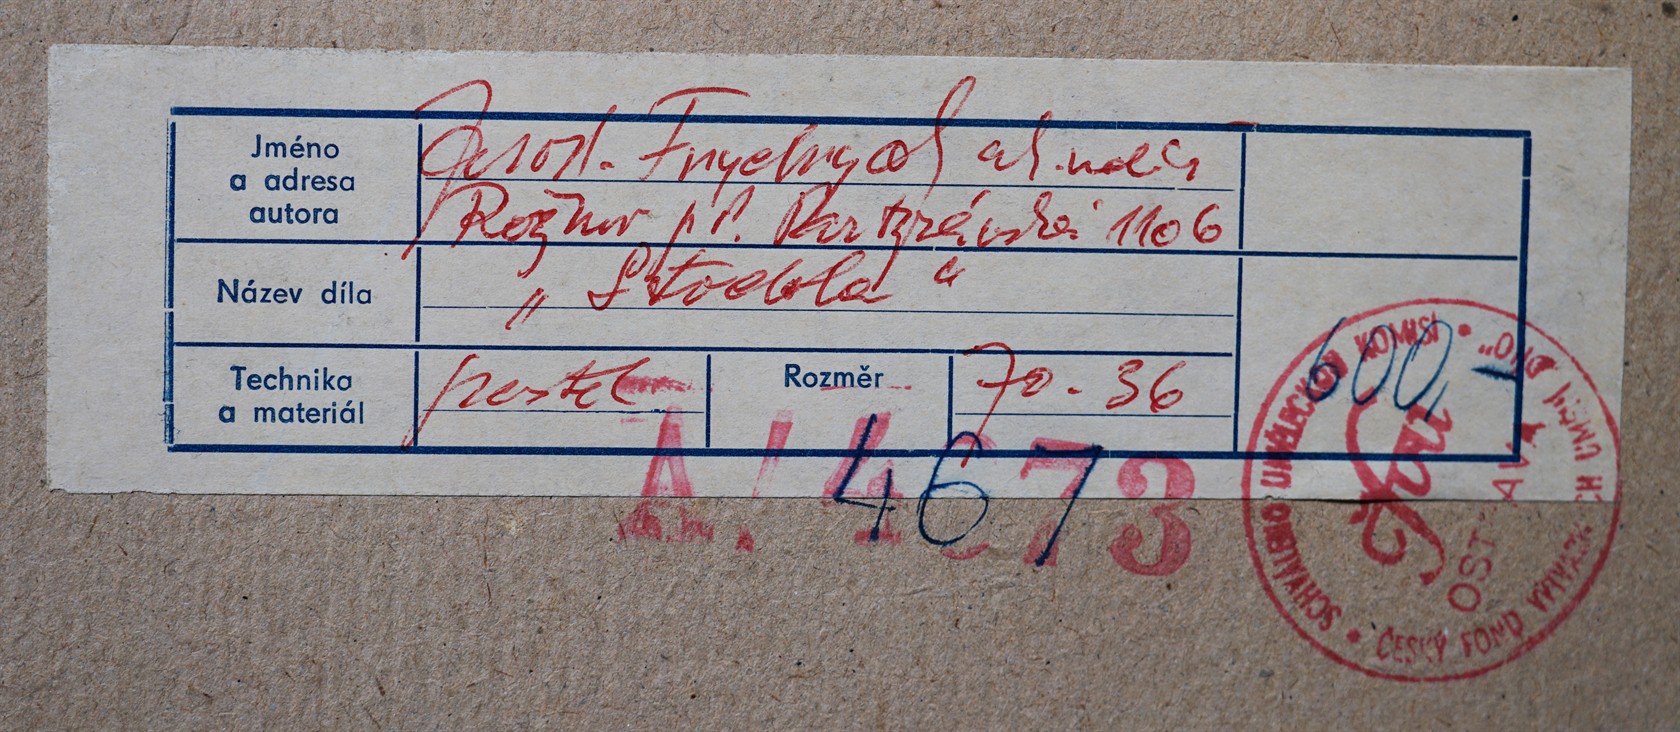 Jméno
a adresa
autora
Jarosl. Frydrych ak. malíř
Rožnov p. R. Partyzánská 1106
Název díla
„Stodola“
Technika
a materiál
pastel
Rozměr
70 - 36
600,-
A/4673
467
SCHVÁLENO UMĚLECKOU KOMISÍ
ČESKÝ FOND VÝTVARNÝCH UMĚNÍ „DÍLO“
OSTRAVA